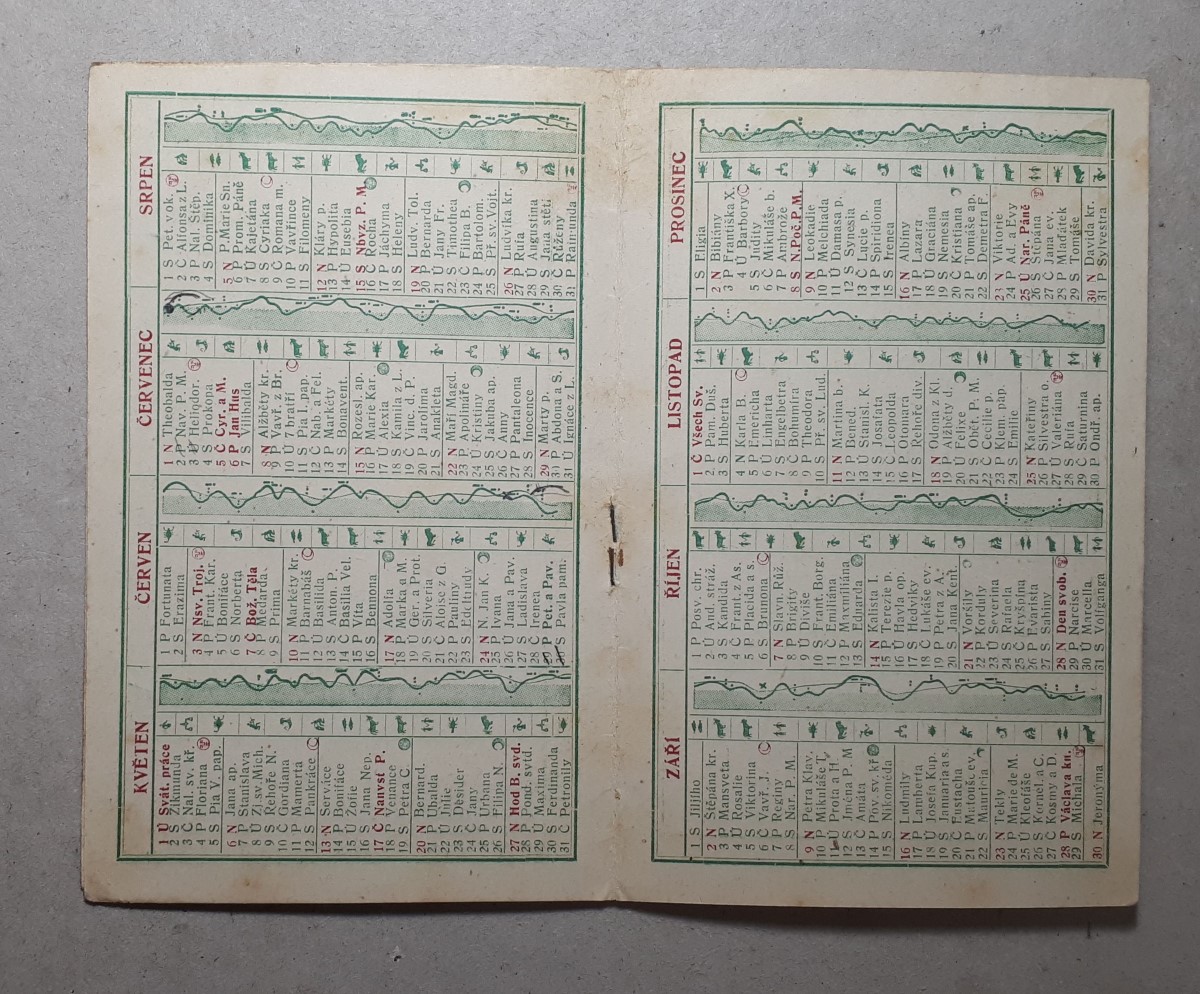 KVĚTEN
1 Ú Svát. práce
2 S Zikmunda
3 Č Nal. sv. kř.
4 P Floriana
5 S Pia V. pap.
6 N Jana ap.
7 P Stanislava
8 Ú Zj. sv. Mich.
9 S Řehoře N.
10 Č Gordiana
11 P Mamerta
12 S Pankráce
13 N Serváce
14 P Bonifáce
15 Ú Žofie
16 S Jana Nep.
17 Č Nanvst P.
18 P Venance
19 S Petra C.
20 N Bernard.
21 P Ubalda
22 Ú Julie
23 S Desider
24 Č Jany
25 P Urbana
26 S Filipa N.
27 N Hod B. svd.
28 P Pond. svtd.
29 Ú Maxima
30 S Ferdinanda
31 Č Petronily
ČERVEN
1 P Fortunata
2 S Erazima
3 N Nsv. Troj.
4 P Frant. Kar.
5 Ú Bonifáce
6 S Norberta
7 Č Bož. Těla
8 P Medarda
9 S Prima
10 N Markéty kr.
11 P Barnabáš
12 Ú Basilida
13 S Anton. P.
14 Č Basilia Vel.
15 P Víta
16 S Bennona
17 N Adolfa
18 P Marka a M.
19 Ú Ger. a Prot.
20 S Silveria
21 Č Aloise z G.
22 P Pauliny
23 S Edeltrudy
24 N N. Jan K.
25 P Ivana
26 Ú Jana a Pav.
27 S Ladislava
28 Č Irenea
29 P Pet. a Pav.
30 S Pavla pam.
ČERVENEC
1 N Theobalda
2 P Navš. P. M.
3 Ú Heliodor.
4 S Prokopa
5 Č Cyr. a M.
6 P Jam Hus
7 S Vilibalda
8 N Alžběty kr.
9 P Vavř. z Br.
10 Ú 7 bratří
11 S Pia I. pap.
12 Č Nab. a Fel.
13 P Markéty
14 S Bonavent.
15 N Rozesl. ap.
16 P Marie Kar.
17 Ú Alexia
18 S Kamila z L.
19 Č Vinc. d. P.
20 P Jarolíma
21 S Anakleta
22 N Maří Magd.
23 P Apolináře
24 Ú Kristiny
25 S Jakuba ap.
26 Č Anny
27 P Pantaleona
28 S Inocence
29 N Marty p.
30 P Abdona a S.
31 Ú Ignáce z L.
SRPEN
1 S Pet. v ok.
2 Č Alfonsa z L.
3 P Nal. Štěp.
4 S Dominika
5 N P. Marie Sn.
6 P Prom. Páně
7 Ú Kajetána
8 S Cyriaka
9 Č Romana m.
10 P Vavřince
11 S Filomeny
12 N Kláry p.
13 P Hypolita
14 Ú Eusebia
15 S Nbvz. P. M.
16 Č Rocha
17 P Jáchyma
18 S Heleny
19 N Ludv. Tol.
20 P Bernarda
21 Ú Jany Fr.
22 S Timothea
23 Č Filipa B.
24 P Bartolom.
25 S Př. sv. Vojt.
26 N Ludvíka kr.
27 P Rufa
28 Ú Augustina
29 S Jana stětí
30 Č Růženy
31 P Raimunda
ZÁŘÍ
1 S Jiljího
2 N Štěpána kr.
3 P Mansveta
4 Ú Rosalie
5 S Viktorina
6 Č Vavř. J.
7 P Reginy
8 S Nar. P. M.
9 N Petra Klav.
10 P Mikuláše T.
11 Ú Prota a H.
12 S Jména P. M
13 Č Amáta
14 P Pov. sv. kř.
15 S Nikomeda
16 N Ludmily
17 P Lamberta
18 Ú Josefa Kup.
19 S Januaria a s.
20 Č Eustacha
21 P Matouš ev.
22 S Mauricia
23 N Tekly
24 P Marie de M.
25 Ú Kleofáše
26 S Kornel. a C.
27 Č Kosmy a D.
28 P Václava kn.
29 S Michala
30 N Jeronýma
ŘÍJEN
1 P Posv. chr.
2 Ú And. stráž.
3 S Kandida
4 Č Frant. z As.
5 P Placida a s.
6 S Brunona
7 N Slavn. Růž.
8 P Brigity
9 Ú Diviše
10 S Frant. Borg.
11 Č Emiliána
12 P Maxmiliána
13 S Eduarda
14 N Kalista I.
15 P Terezie p.
16 Ú Havla op.
17 S Hedviky
18 Č Lukáše ev.
19 P Petra z A.
20 S Jana Kent.
21 N Voršily
22 P Korduly
23 Ú Severina
24 S Rafaela
25 Č Kryšpína
26 P Evarista
27 S Sabiny
28 N Den svob.
29 P Narcise
30 Ú Marcella
31 S Volfganga
LISTOPAD
1 Č Všech Sv.
2 P Pam. Duš.
3 S Huberta
4 N Karla B.
5 P Emericha
6 Ú Linharta
7 S Engelberta
8 Č Bohumíra
9 P Theodora
10 S Př. sv. Lud.
11 N Martina b.
12 P Bened.
13 Ú Stanisl. K.
14 S Josafata
15 Č Leopolda
16 P Otomara
17 S Řehoře div.
18 N Odona z Kl.
19 P Alžběty d.
20 Ú Felixe
21 S Obět. P. M.
22 Č Cecilie p.
23 P Klem. pap.
24 S Emilie
25 N Kateřiny
26 P Silvestra o.
27 Ú Valeriána
28 S Rufa
29 Č Saturnina
30 P Ondř. ap.
PROSINEC
1 S Eligia
2 N Bibiány
3 P Františka X.
4 Ú Barbory
5 S Judity
6 Č Mikuláše b.
7 P Ambrože
8 S N. Poč. P. M.
9 N Leokadie
10 P Melchiada
11 Ú Damasa p.
12 S Synesia
13 Č Lucie p.
14 P Spiridiona
15 S Irenea
16 N Albíny
17 P Lazara
18 Ú Graciána
19 S Nemesia
20 Č Kristiana
21 P Tomáše ap.
22 S Demetra F.
23 N Viktorie
24 P Ad. a Evy
25 Ú Nar. Páně
26 S Štěpána
27 Č Jana ev.
28 P Mláďátek
29 S Tomáše
30 N Davida kr.
31 P Sylvestra